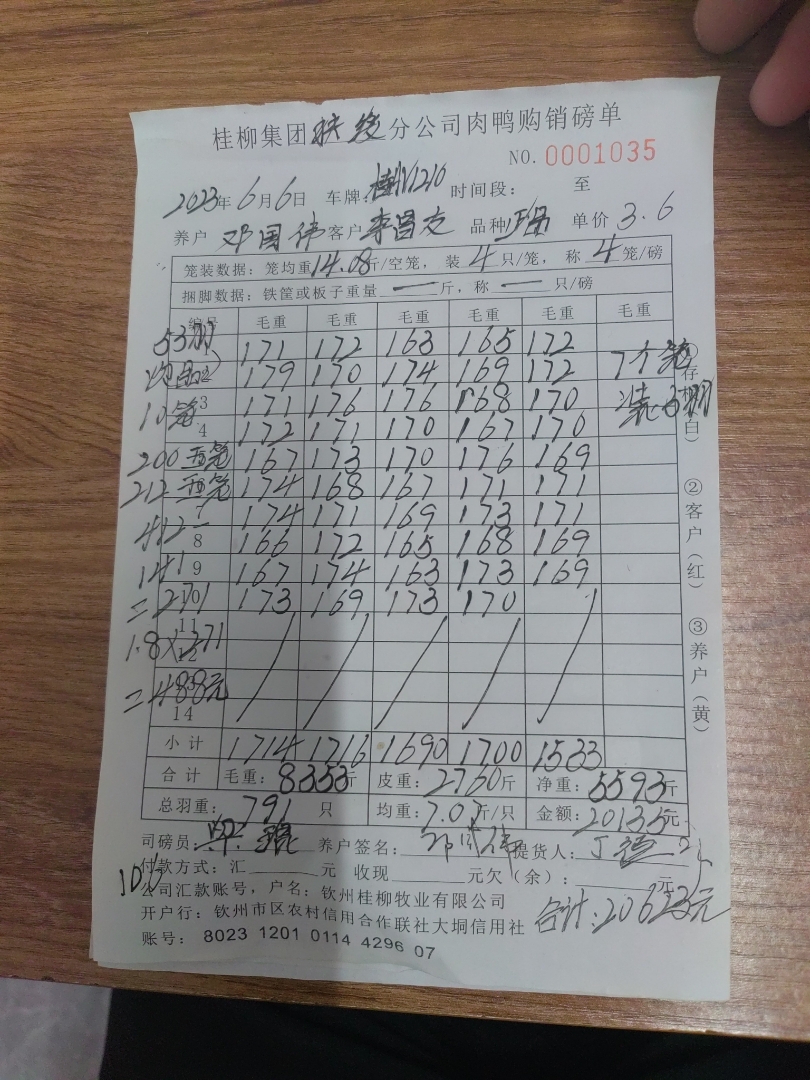 桂柳集团扶绥分公司肉鸭购销磅单
NO. 0001035
2023年6月6日 车牌: 1210 时间段: 至
养户 邓国伟 客户 李昌友 品种 单价 3.6
笼装数据: 笼均重14.08斤/空笼, 装4只/笼, 称4笼/磅
捆脚数据: 铁筐或板子重量 — 斤, 称 — 只/磅
编号 毛重 毛重 毛重 毛重 毛重 毛重
53羽 171 172 163 165 172
179 170 174 169 172 7个笼
10笼 3 171 176 176 168 170 装3羽
4 172 171 170 167 170
200 笼 167 173 170 176 169
212 笼 174 168 167 171 171
412 7 174 171 169 173 171
8 166 172 165 168 169
141 9 167 174 163 173 169
=271 10 173 169 173 170
11
1.8×271 12
=488元
14
小计 1714 1716 1690 1700 1533
合计 毛重: 8353斤 皮重: 2760斤 净重: 5593斤
总羽重: 791 只 均重: 7.07斤/只 金额: 20135元
司磅员: 养户签名: 邓国伟 提货人:
付款方式: 汇 元 收现 元欠(余): 元
公司汇款账号, 户名: 钦州桂柳牧业有限公司
开户行: 钦州市区农村信用合作联社大垌信用社
合计: 20623元
账号: 8023 1201 0114 4296 07
①存根(白)
②客户(红)
③养户(黄)